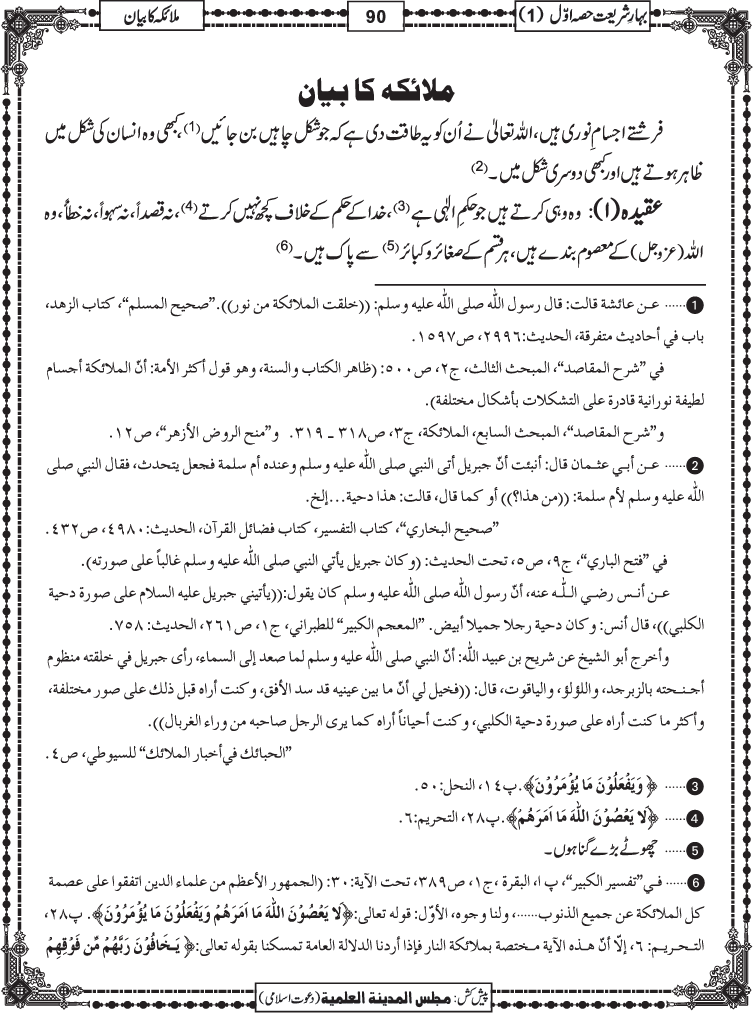 بہارِشریعت حصہ اوّل (1)
90
ملائکہ کا بیان
ملائکہ کا بیان
فرشتے اجسامِ نوری ہیں، اللہ تعالیٰ نے اُن کو یہ طاقت دی ہے کہ جو شکل چاہیں بن جائیں(1)، کبھی وہ انسان کی شکل میں
ظاہر ہوتے ہیں اور کبھی دوسری شکل میں۔(2)
عقیدہ (۱): وہ وہی کرتے ہیں جو حکمِ الٰہی ہے(3)، خدا کے حکم کے خلاف کچھ نہیں کرتے(4)، نہ قصداً، نہ سہواً، نہ خطأً، وہ
اللہ (عزوجل) کے معصوم بندے ہیں، ہر قسم کے صغائر و کبائر(5) سے پاک ہیں۔(6)
1...... عـن عائشة قالت: قال رسول اللّٰه صلى اللّٰه عليه وسلم: ((خلقت الملائكة من نور)).”صحيح المسلم“، كتاب الزهد،
باب في أحاديث متفرقة، الحديث:٢٩٩٦، ص١٥٩٧.
في ”شرح المقاصد“، المبحث الثالث، ج٢، ص٥٠٠: (ظاهر الكتاب والسنة، وهو قول أكثر الأمة: أنّ الملائكة أجسام
لطيفة نورانية قادرة على التشكلات بأشكال مختلفة).
و”شرح المقاصد“، المبحث السابع، الملائكة، ج٣، ص٣١٨ ـ ٣١٩. و”منح الروض الأزهر“، ص١٢.
2...... عـن أبـي عثـمان قال: أنبئت أنّ جبريل أتى النبي صلى اللّٰه عليه وسلم وعنده أم سلمة فجعل يتحدث، فقال النبي صلى
اللّٰه عليه وسلم لأم سلمة: ((من هذا؟)) أو كما قال، قالت: هذا دحية...إلخ.
”صحيح البخاري“، كتاب التفسير، كتاب فضائل القرآن، الحديث: ٤٩٨٠، ص٤٣٢.
في ”فتح الباري“، ج٩، ص٥، تحت الحديث: (وكان جبريل يأتي النبي صلى اللّٰه عليه وسلم غالباً على صورته).
عـن أنـس رضـي اللّٰـه عنه، أنّ رسول اللّٰه صلى اللّٰه عليه وسلم كان يقول:((يأتيني جبريل عليه السلام على صورة دحية
الكلبي))، قال أنس: وكان دحية رجلا جميلا أبيض. ”المعجم الكبير“ للطبراني، ج١، ص٢٦١، الحديث: ٧٥٨.
وأخرج أبو الشيخ عن شريح بن عبيد اللّٰه: أنّ النبي صلى اللّٰه عليه وسلم لما صعد إلى السماء، رأى جبريل في خلقته منظوم
أجـنـحته بالزبرجد، واللؤلؤ، والياقوت، قال: ((فخيل لي أنّ ما بين عينيه قد سد الأفق، وكنت أراه قبل ذلك على صور مختلفة،
وأكثر ما كنت أراه على صورة دحية الكلبي، وكنت أحياناً أراه كما يرى الرجل صاحبه من وراء الغربال)).
”الحبائك في أخبار الملائك“ للسيوطي، ص٤.
3...... ﴿ وَيَفْعَلُوْنَ مَا يُؤْمَرُوْنَ﴾.پ١٤، النحل:٥٠.
4...... ﴿لَا يَعْصُوْنَ اللّٰهَ مَا اَمَرَهُمْ﴾.پ٢٨، التحريم:٦.
5...... چھوٹے بڑے گناہوں۔
6...... فـي”تفسير الكبير“، پ١، البقرة، ج١، ص٣٨٩، تحت الآية:٣٠: (الجمهور الأعظم من علماء الدين اتفقوا على عصمة
كل الملائكة عن جميع الذنوب......، ولنا وجوه، الأوّل: قوله تعالى:﴿لَا يَعْصُوْنَ اللّٰهَ مَا اَمَرَهُمْ وَيَفْعَلُوْنَ مَا يُؤْمَرُوْنَ﴾. پ٢٨،
التـحـريـم: ٦، إلّا أنّ هـذه الآية مـختصة بملائكة النار فإذا أردنا الدلالة العامة تمسكنا بقوله تعالى:﴿ يَـخَافُوْنَ رَبَّهُمْ مِّن فَوْقِهِمْ
پیش کش: مجلس المدینة العلمیة (دعوت اسلامی)